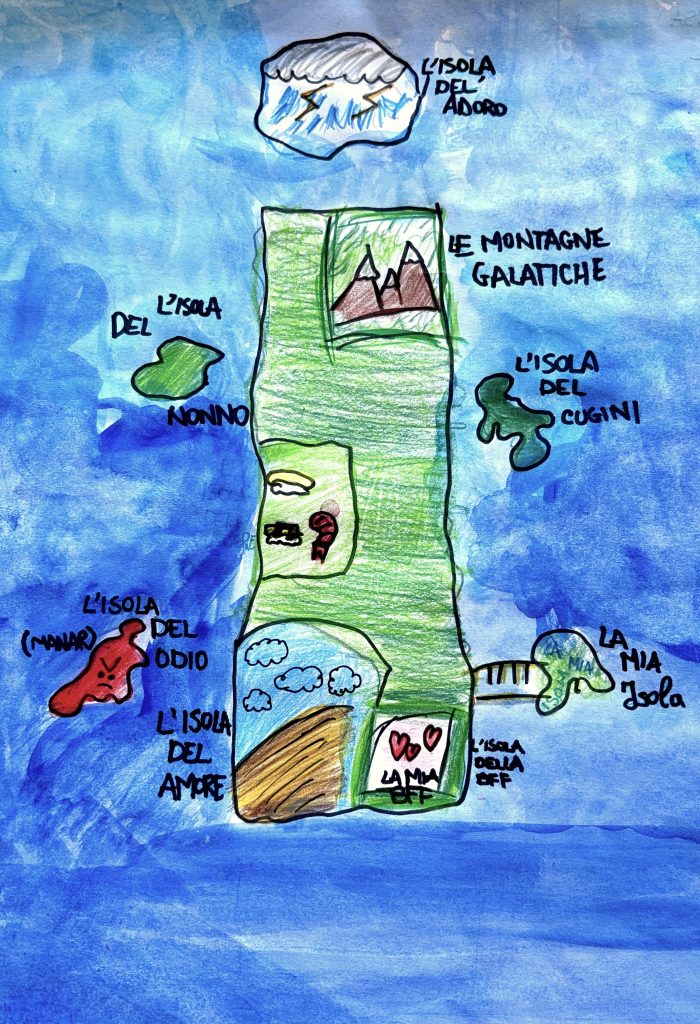 L'ISOLA
DEL'
ADORO
LE MONTAGNE
GALATICHE
L'ISOLA
DEL
NONNO
L'ISOLA
DEL
CUGINI
L'ISOLA
(MANAR) DEL
ODIO
LA
MIA
Isola
L'ISOLA
DEL
AMORE
LA MIA
BFF
L'ISOLA
DELLA
BFF